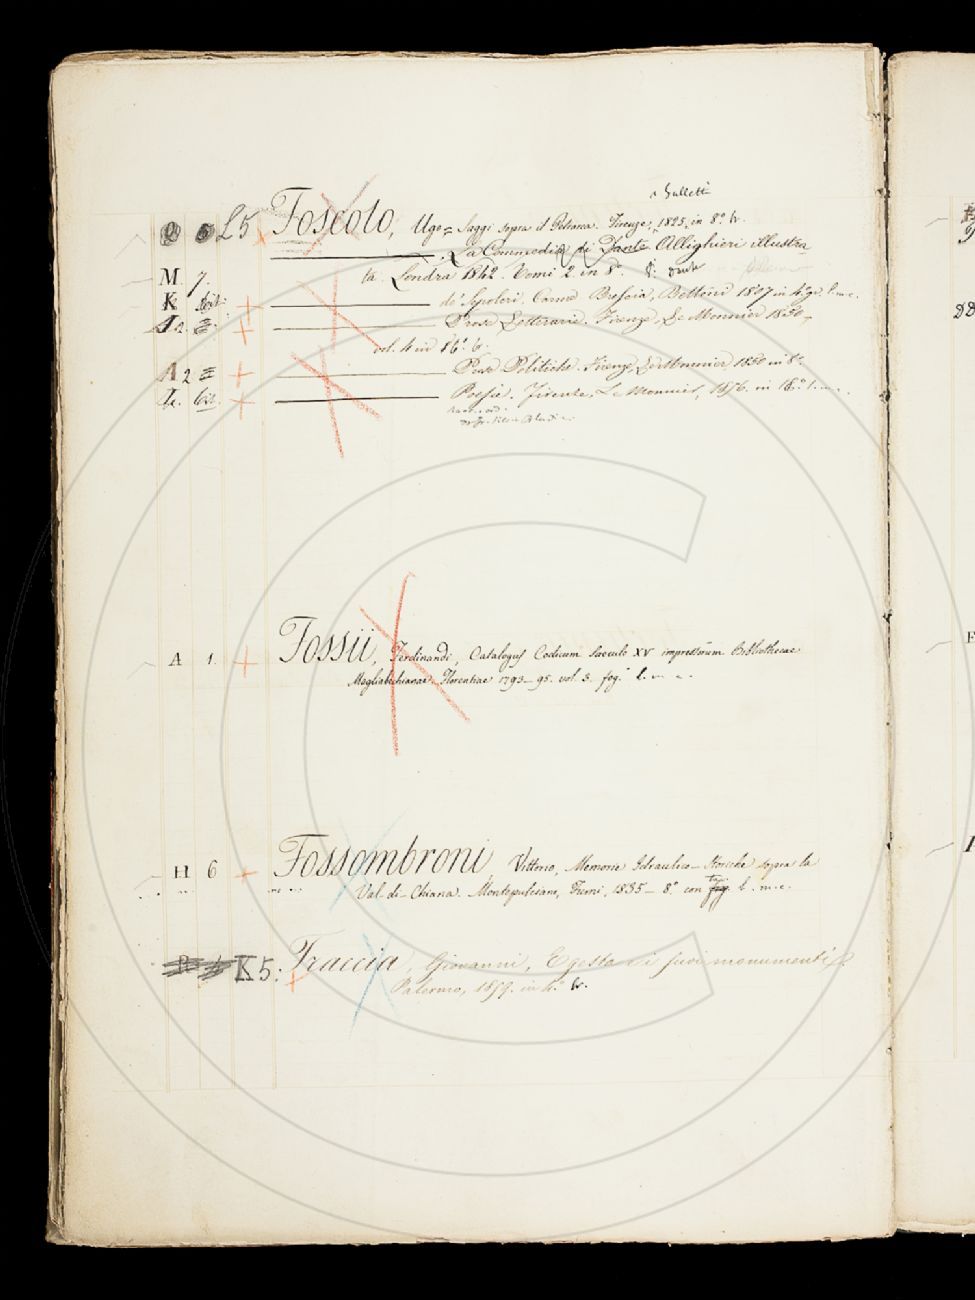 L5 Foscolo, Ugo = Saggi sopra il Petrarca. Firenze, 1825, in 8.°
La Commedia di Dante Allighieri illustra-
M 7. ta. Londra 1842. Tomi 2 in 8.°
K de' Sepolcri. Carme Brescia, Bettoni 1807 in 4.° gr.
2 Prose Letterarie. Firenze, Le Monnier 1850,
vol. 4 in 16.°
A 2 Prose Politiche. Firenze, Le Monnier, 1850 in 8.°
Poesie. Firenze, Le Monnier, 1856. in 18.°
A 1. Fossii, Ferdinandi, Catalogus Codicum saeculo XV impressorum Bibliothecae
Magliabechianae. Florentiae 1793-95. vol. 3. fog.
H 6 Fossombroni, Vittorio, Memorie Idraulico-Storiche sopra la
Val-di-Chiana. Montepulciano, Fumi, 1835- 8.° con tav.
K5: Fraccia, Giovanni, Egesta e i suoi monumenti
Palermo, 1859. in 4.°